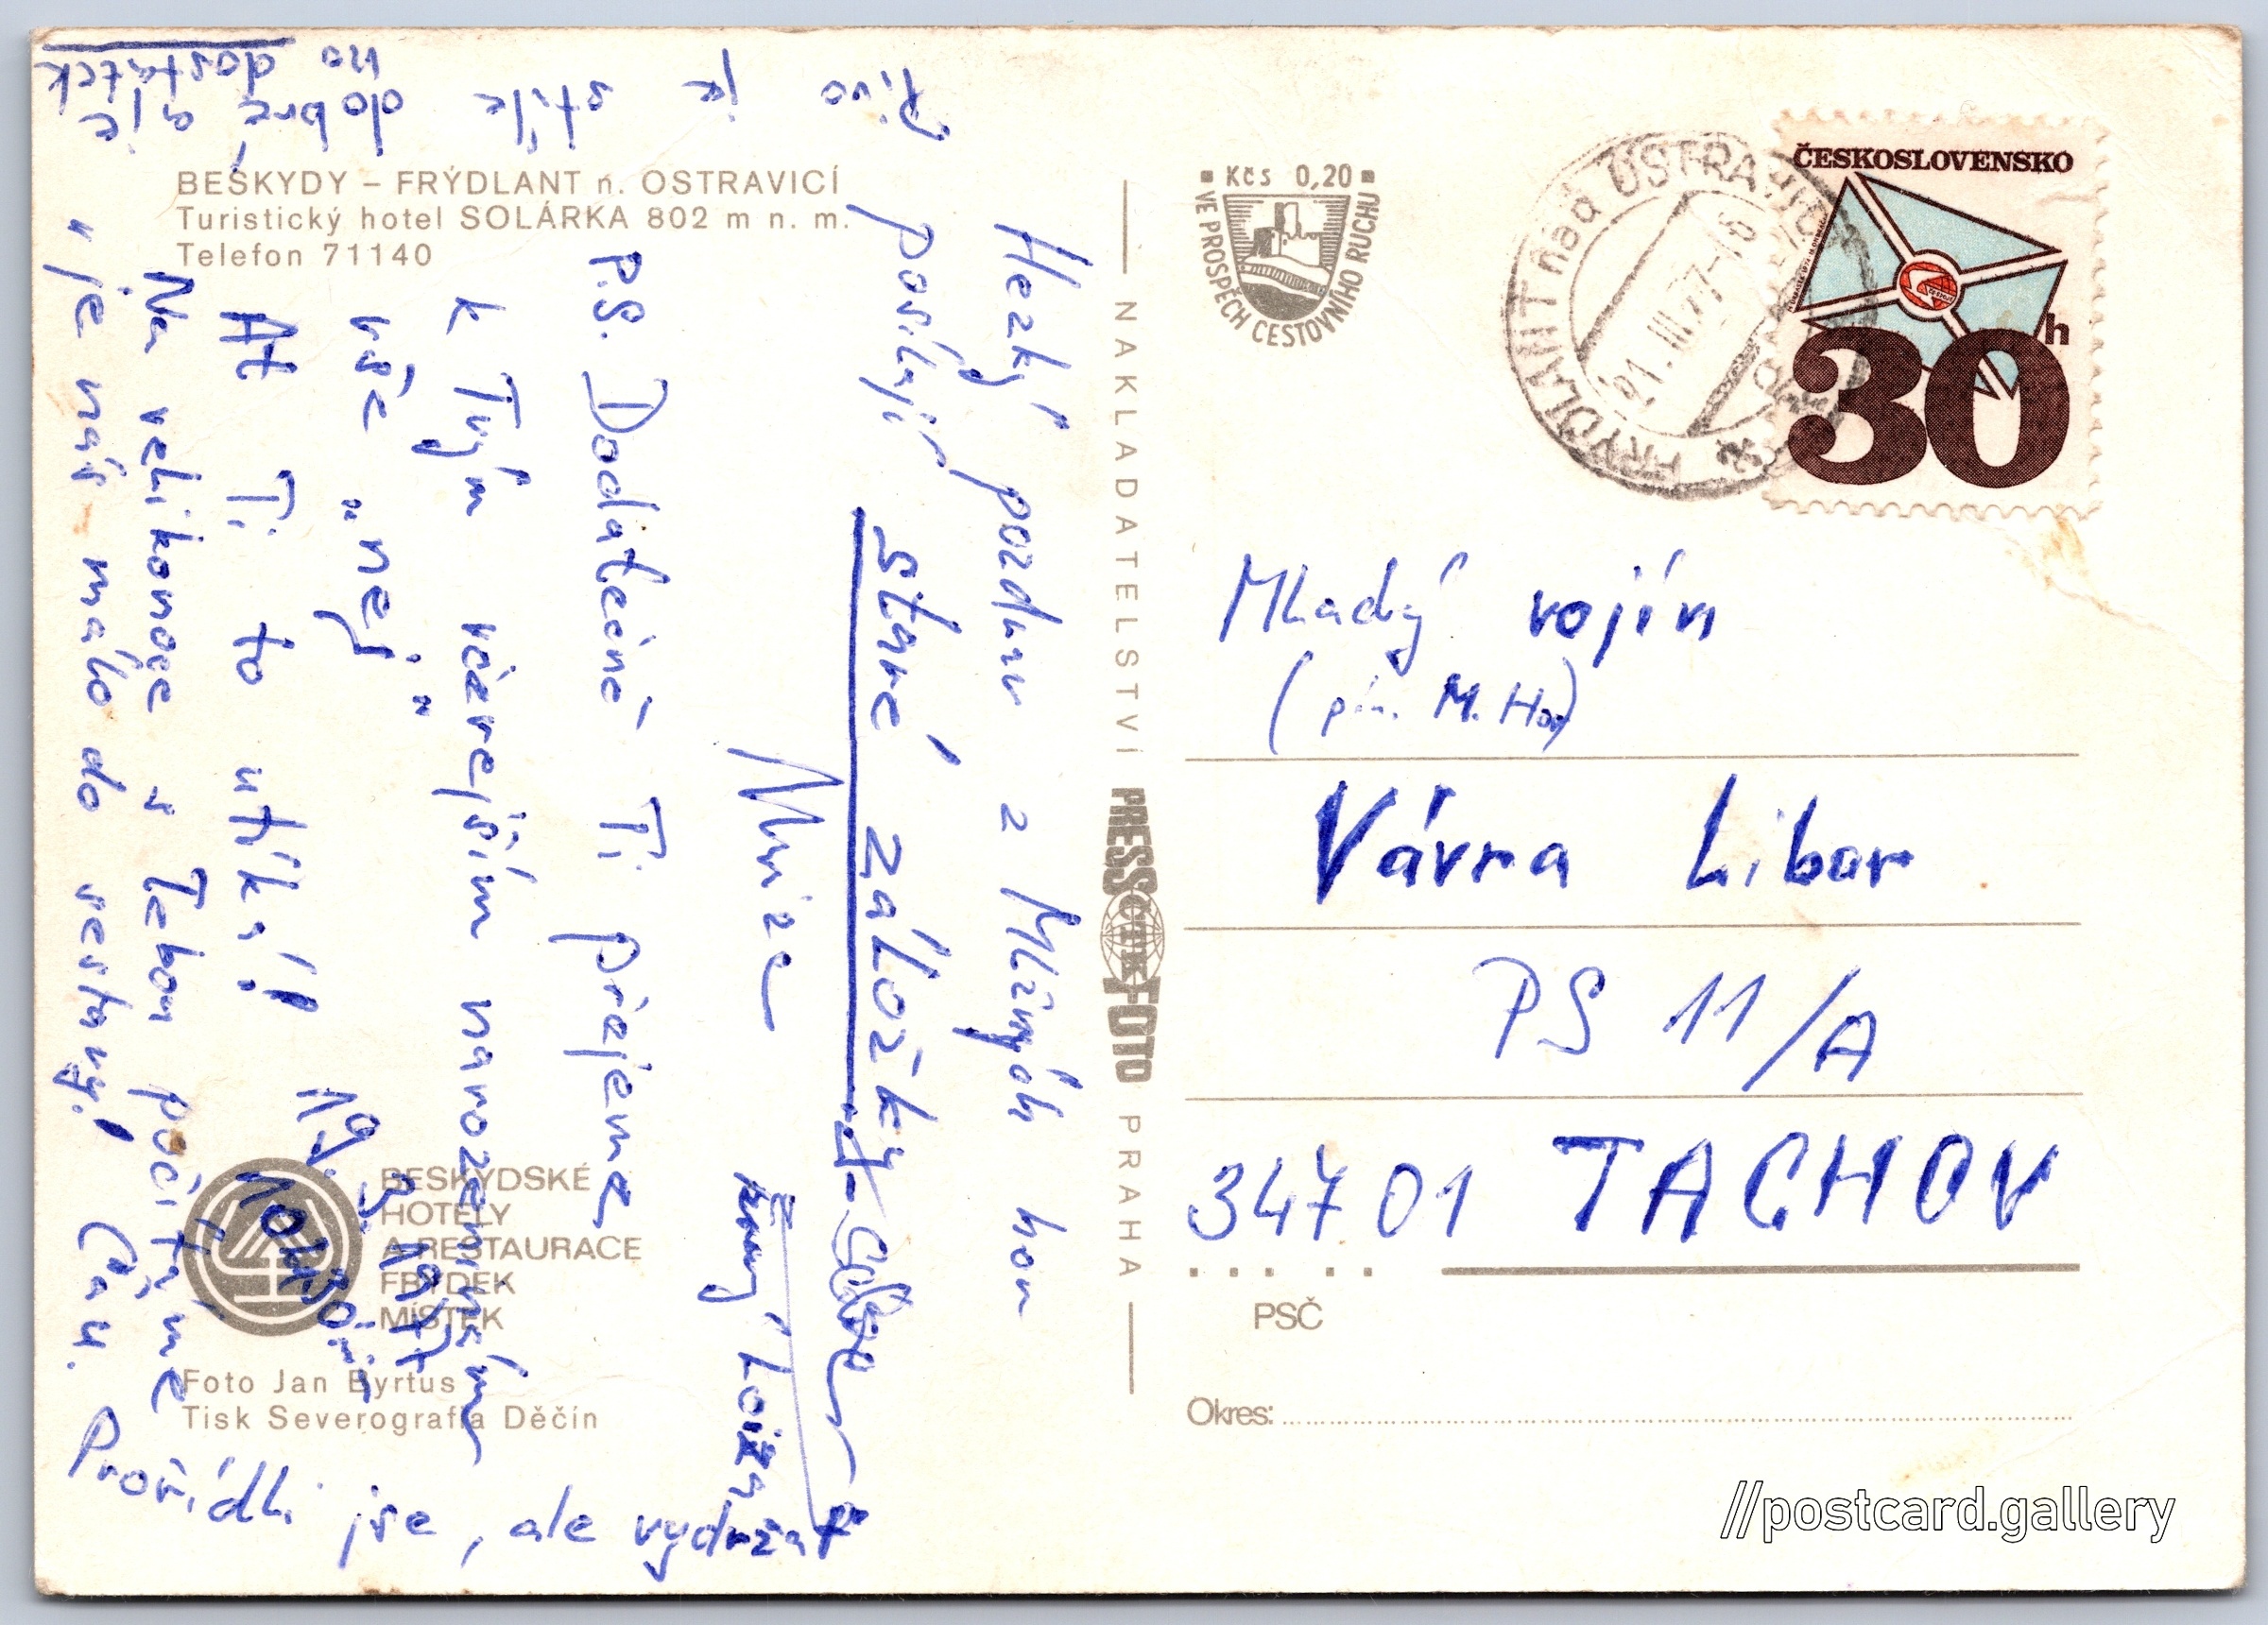 BESKYDY – FRÝDLANT n. OSTRAVICÍ
Turistický hotel SOLÁRKA 802 m n. m.
Telefon 71140
Hezký pozdrav z Mlžných hor
posílají staré záložky
Mirze
P.S. Dodatečně Ti přejeme
k Tvým včerejším narozeninám
vše „nej"
Ať Ti to utíká!
19. 3. 1977
Na velikonoce s Tebou počítáme
je nás málo do sestavy! Čau.
Prořídli jse, ale vydržat
Pivo je stále dobré a je
ho dostatek
BESKYDSKÉ
HOTELY
A RESTAURACE
FRÝDEK
MÍSTEK
Foto Jan Byrtus
Tisk Severografia Děčín
NAKLADATELSTVÍ PRESSFOTO PRAHA
ČTK
Kčs 0,20
VE PROSPĚCH CESTOVNÍHO RUCHU
FRÝDLANT nad OSTRAVICÍ
21. III. 77-16
ČESKOSLOVENSKO
30h
Mladý vojín
(M. Hor)
Vávra Libor
PS 11/A
34701 TACHOV
PSČ
Okres:
//postcard.gallery